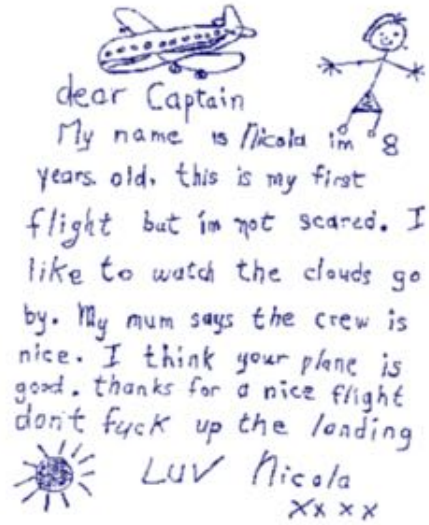 dear Captain
My name is Nicola im 8
years old, this is my first
flight but im not scared. I
like to watch the clouds go
by. My mum says the crew is
nice. I think your plane is
good. thanks for a nice flight
don't fuck up the landing
LUV Nicola
xxxx